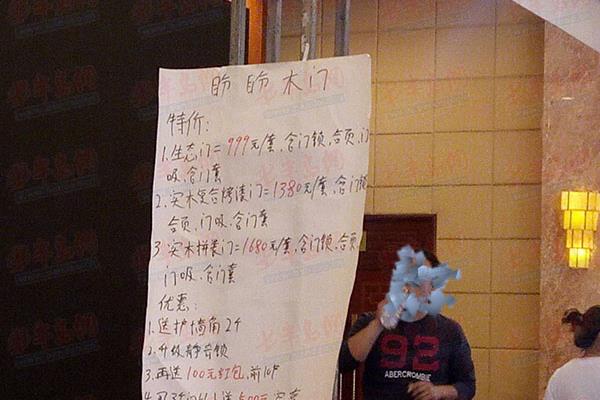 盼盼木门
特价:
1.生态门=999元/套,含门锁,合页,门
吸,含门套
2.实木复合烤漆门=1380元/套,含门锁
合页,门吸,含门套
3.实木拼装门=1680元/套,含门锁,合页
门吸,含门套
优惠:
1.送护墙角2个
2.升级静音锁
3.再送100元红包,前10户
92
ABERCROMBIE